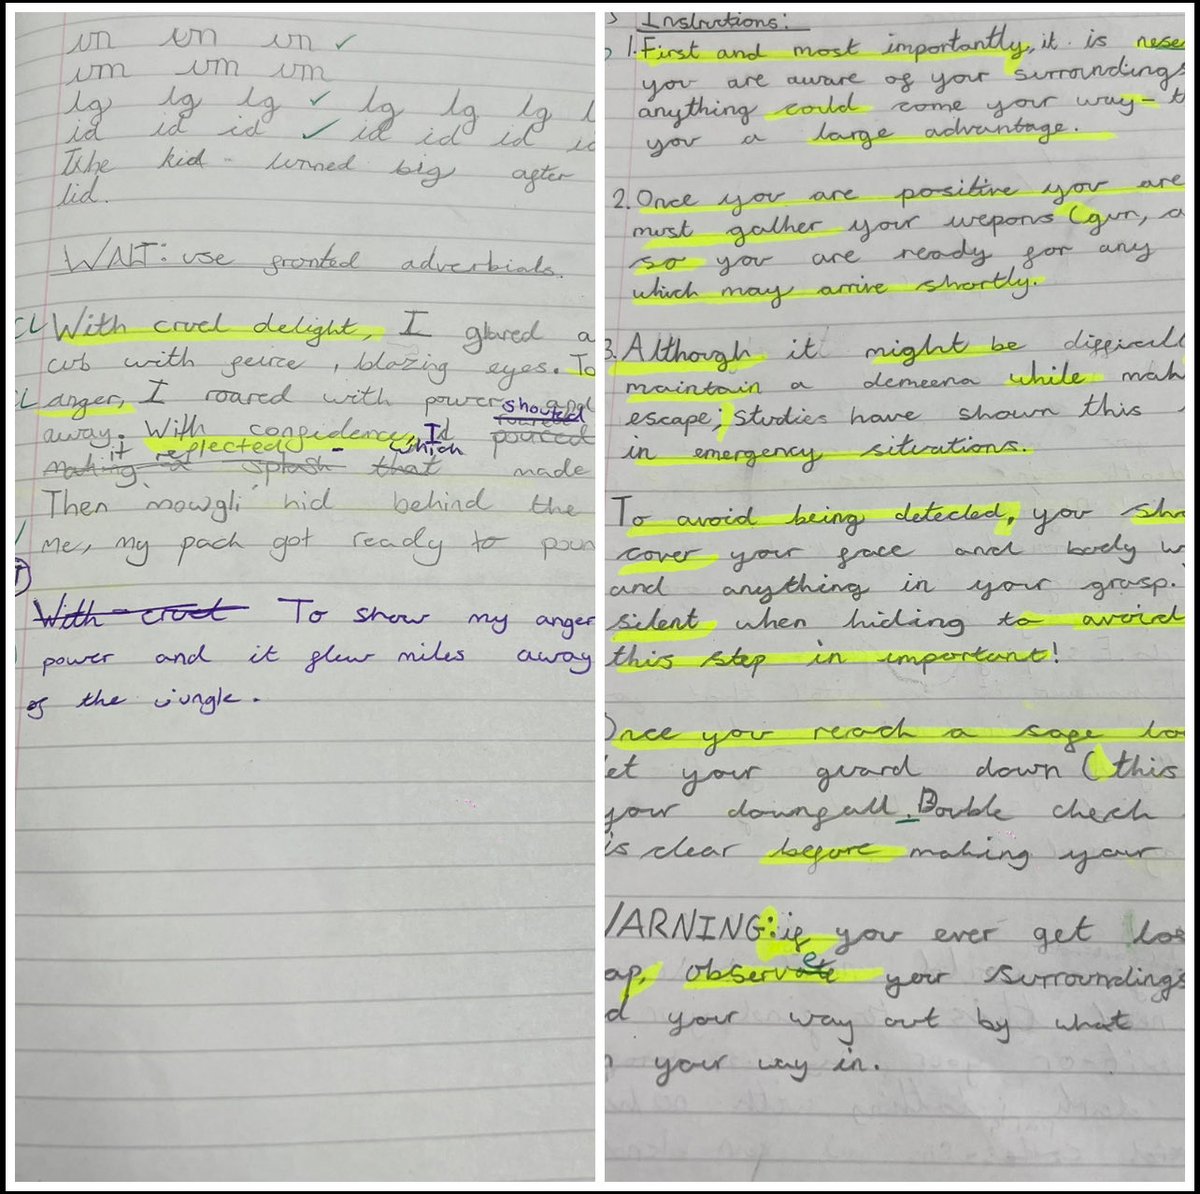 un un un ✓
um um um
lg lg lg ✓ lg lg lg l
id id id ✓ id id id
The kid big after
lid.
WALT: use fronted adverbials.
CL With cruel delight, I glared a
cub with feirce, blazing eyes. To
CL anger, I roared with power and
shouted
away. With confidence, I poured
it reflected - which
making a splash that made
Then mowgli hid behind the
me, my pack got ready to poun
With cruel To show my anger
power and it flew miles away
of the jungle.
Instructions:
1. First and most importantly, it is nese
you are aware of your surroundings
anything could come your way - t
you a large advantage.
2. Once you are positive you are
must gather your wepons (gun, a
so you are ready for any
which may arrive shortly.
3. Although it might be difficult
maintain a demeena while mak
escape; studies have shown this
in emergency situations.
To avoid being detected, you sho
cover your face and body w
and anything in your grasp.
silent when hiding to avoid
this step in important!
Once you reach a safe lo
let your guard down (this
your downfall. Double check
is clear before making your
WARNING: if you ever get los
ap, observe your surroundings
d your way out by what
your way in.